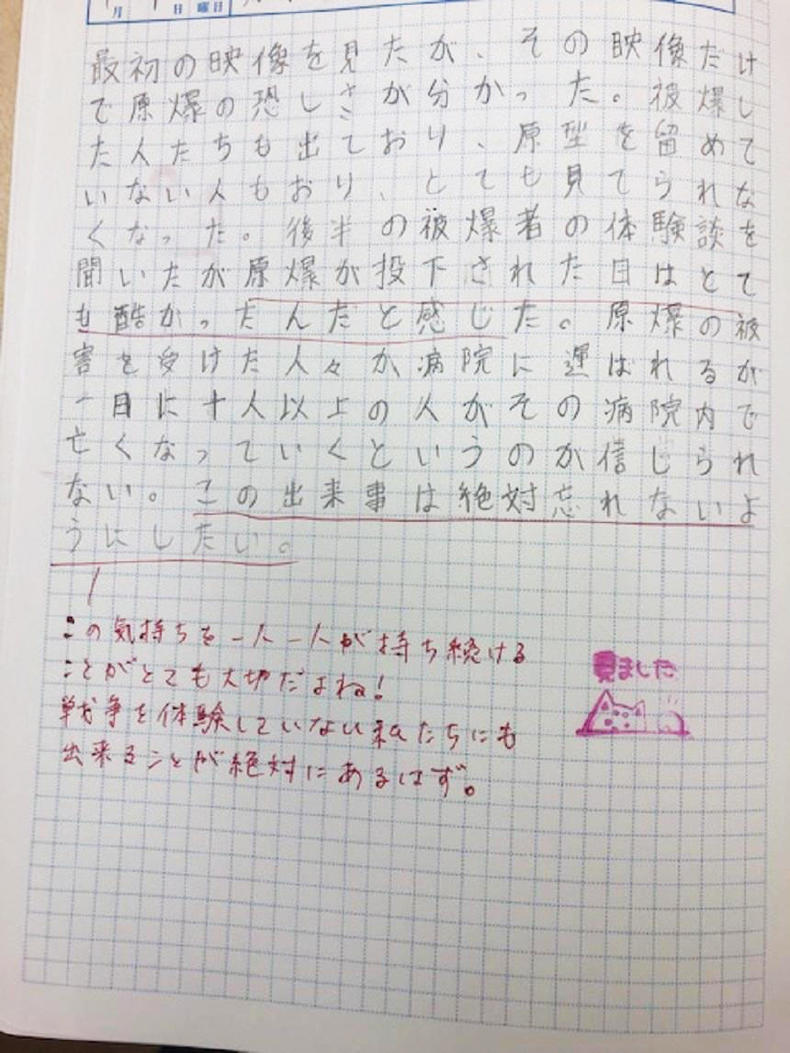 月 日 曜日
最初の映像を見たが、その映像だけ
で原爆の恐しさが分かった。被爆し
た人たちも出ており、原型を留めて
いない人もおり、とても見てられな
くなった。後半の被爆者の体験談を
聞いたが原爆が投下された日はとて
も酷かったんだと感じた。原爆の被
害を受けた人々が病院に運ばれるが
一日に十人以上の人がその病院内で
亡くなっていくというのが信じられ
ない。この出来事は絶対忘れないよ
うにしたい。
この気持ちを一人一人が持ち続ける
ことがとても大切だよね!
戦争を体験していない私たちにも
出来ることが絶対にあるはず。
見ました